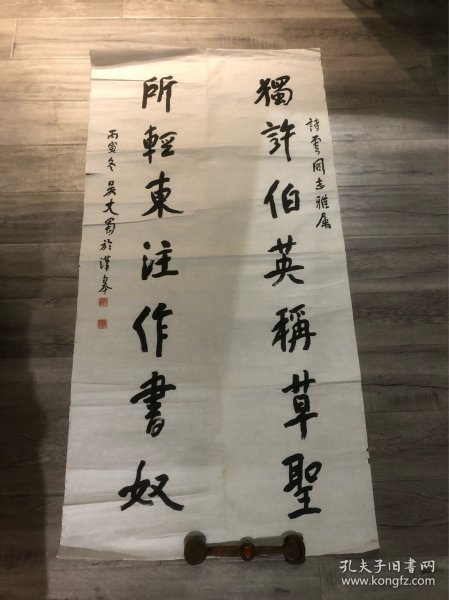 獨許伯英稱草聖
詩雲同志雅屬
所輕東注作書奴
丙寅冬吴丈蜀於漢皋
孔夫子旧书网
www.kongfz.com